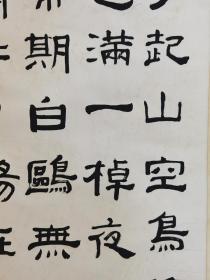 起山空鳥
滿一棹夜
期白鷗無